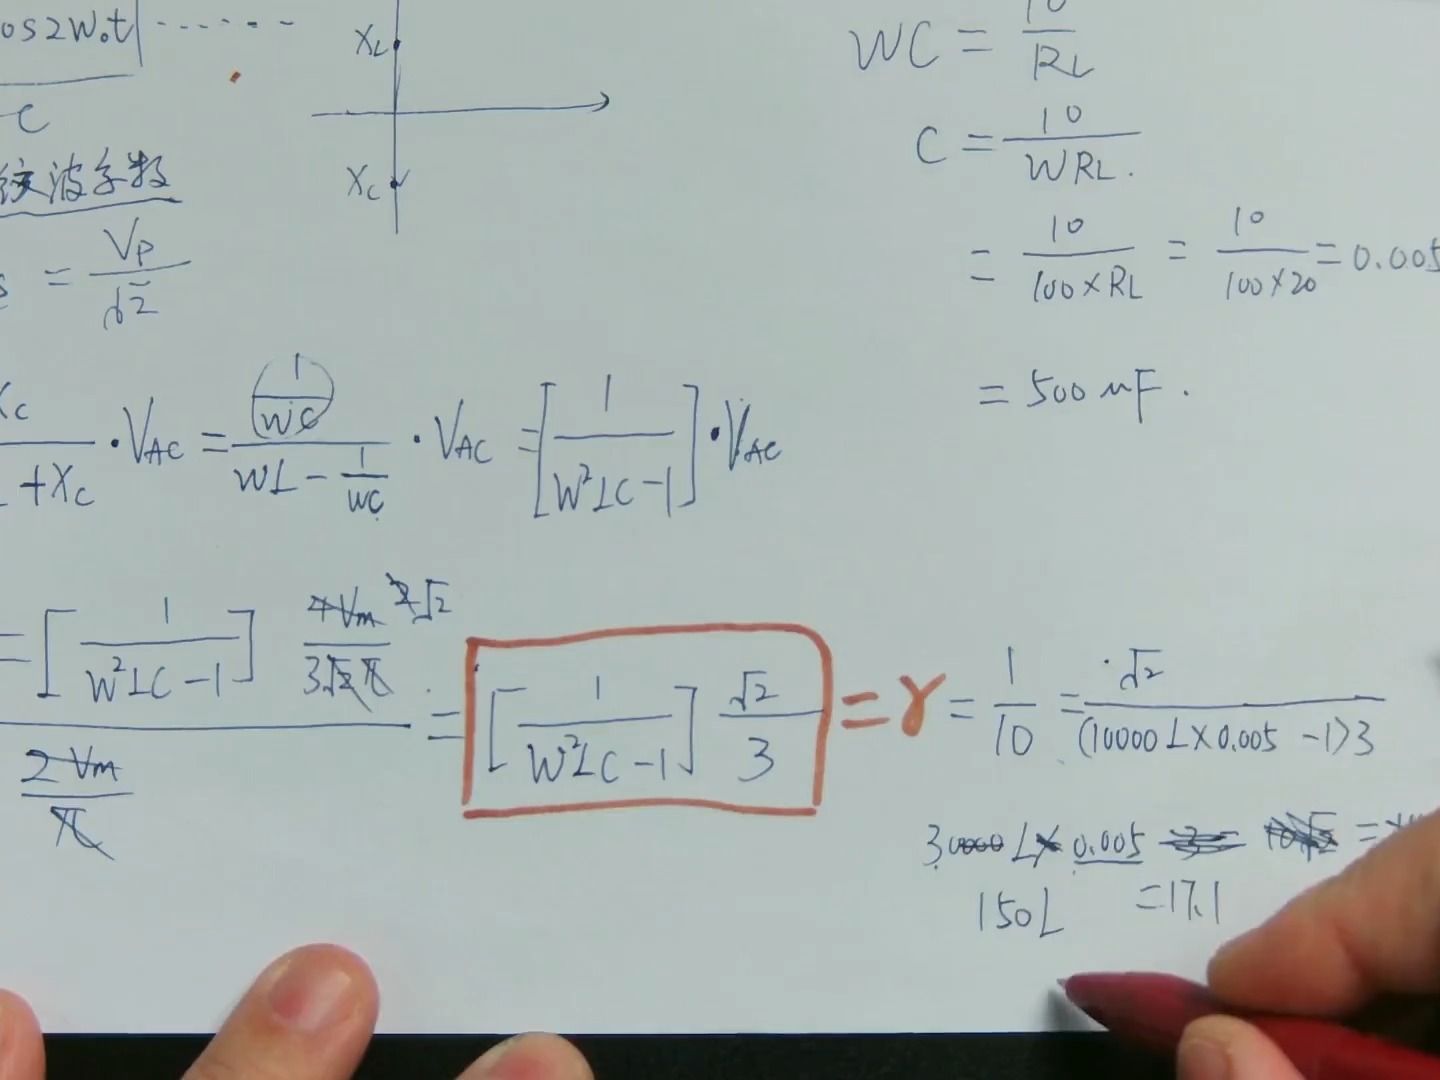 os2W₀t| ------
C
纹波系数
= Vp/√2
X_L
X_C
WC = 10/RL
C = 10/WRL.
= 10/(100×RL) = 10/(100×20) = 0.005
= 500uF.
+Xc · VAC = (1/WC)/(WL - 1/WC) · VAC = [1/(W²LC-1)] · VAC
= [1/(W²LC-1)] 4Vm/(3√2π) 2√2
2Vm/π
= [1/(W²LC-1)] √2/3 = γ = 1/10 = √2/((10000L×0.005 -1)3
30000L×0.005
150L = 17.1